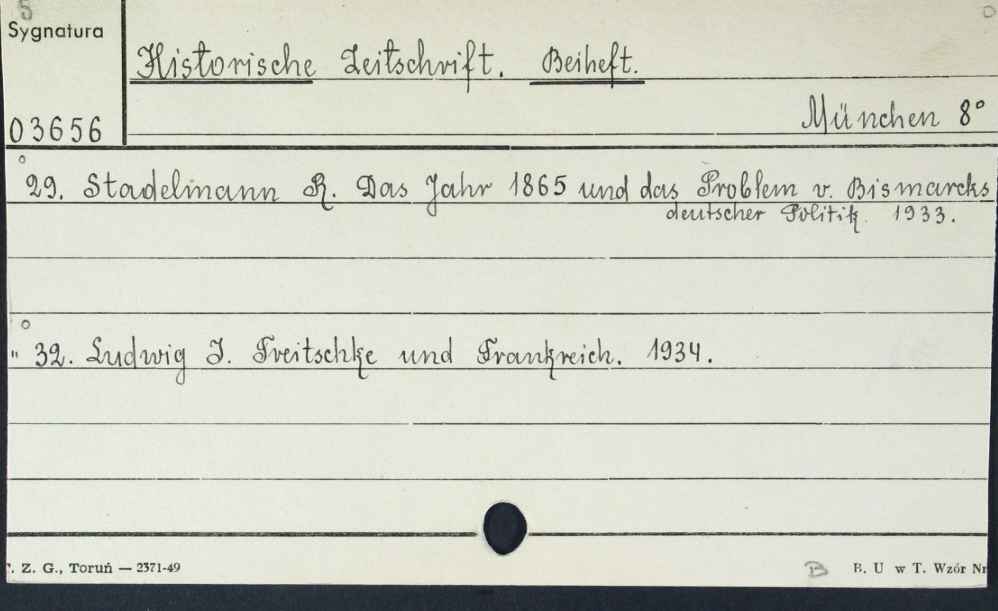 5
Sygnatura
Historische Zeitschrift. Beiheft.
03656
München 8°
29. Stadelmann R. Das Jahr 1865 und das Problem v. Bismarcks
deutscher Politik 1933.
" 32. Ludwig J. Treitschke und Frankreich. 1934.
T. Z. G., Toruń — 2371-49
B
B. U w T. Wzór Nr